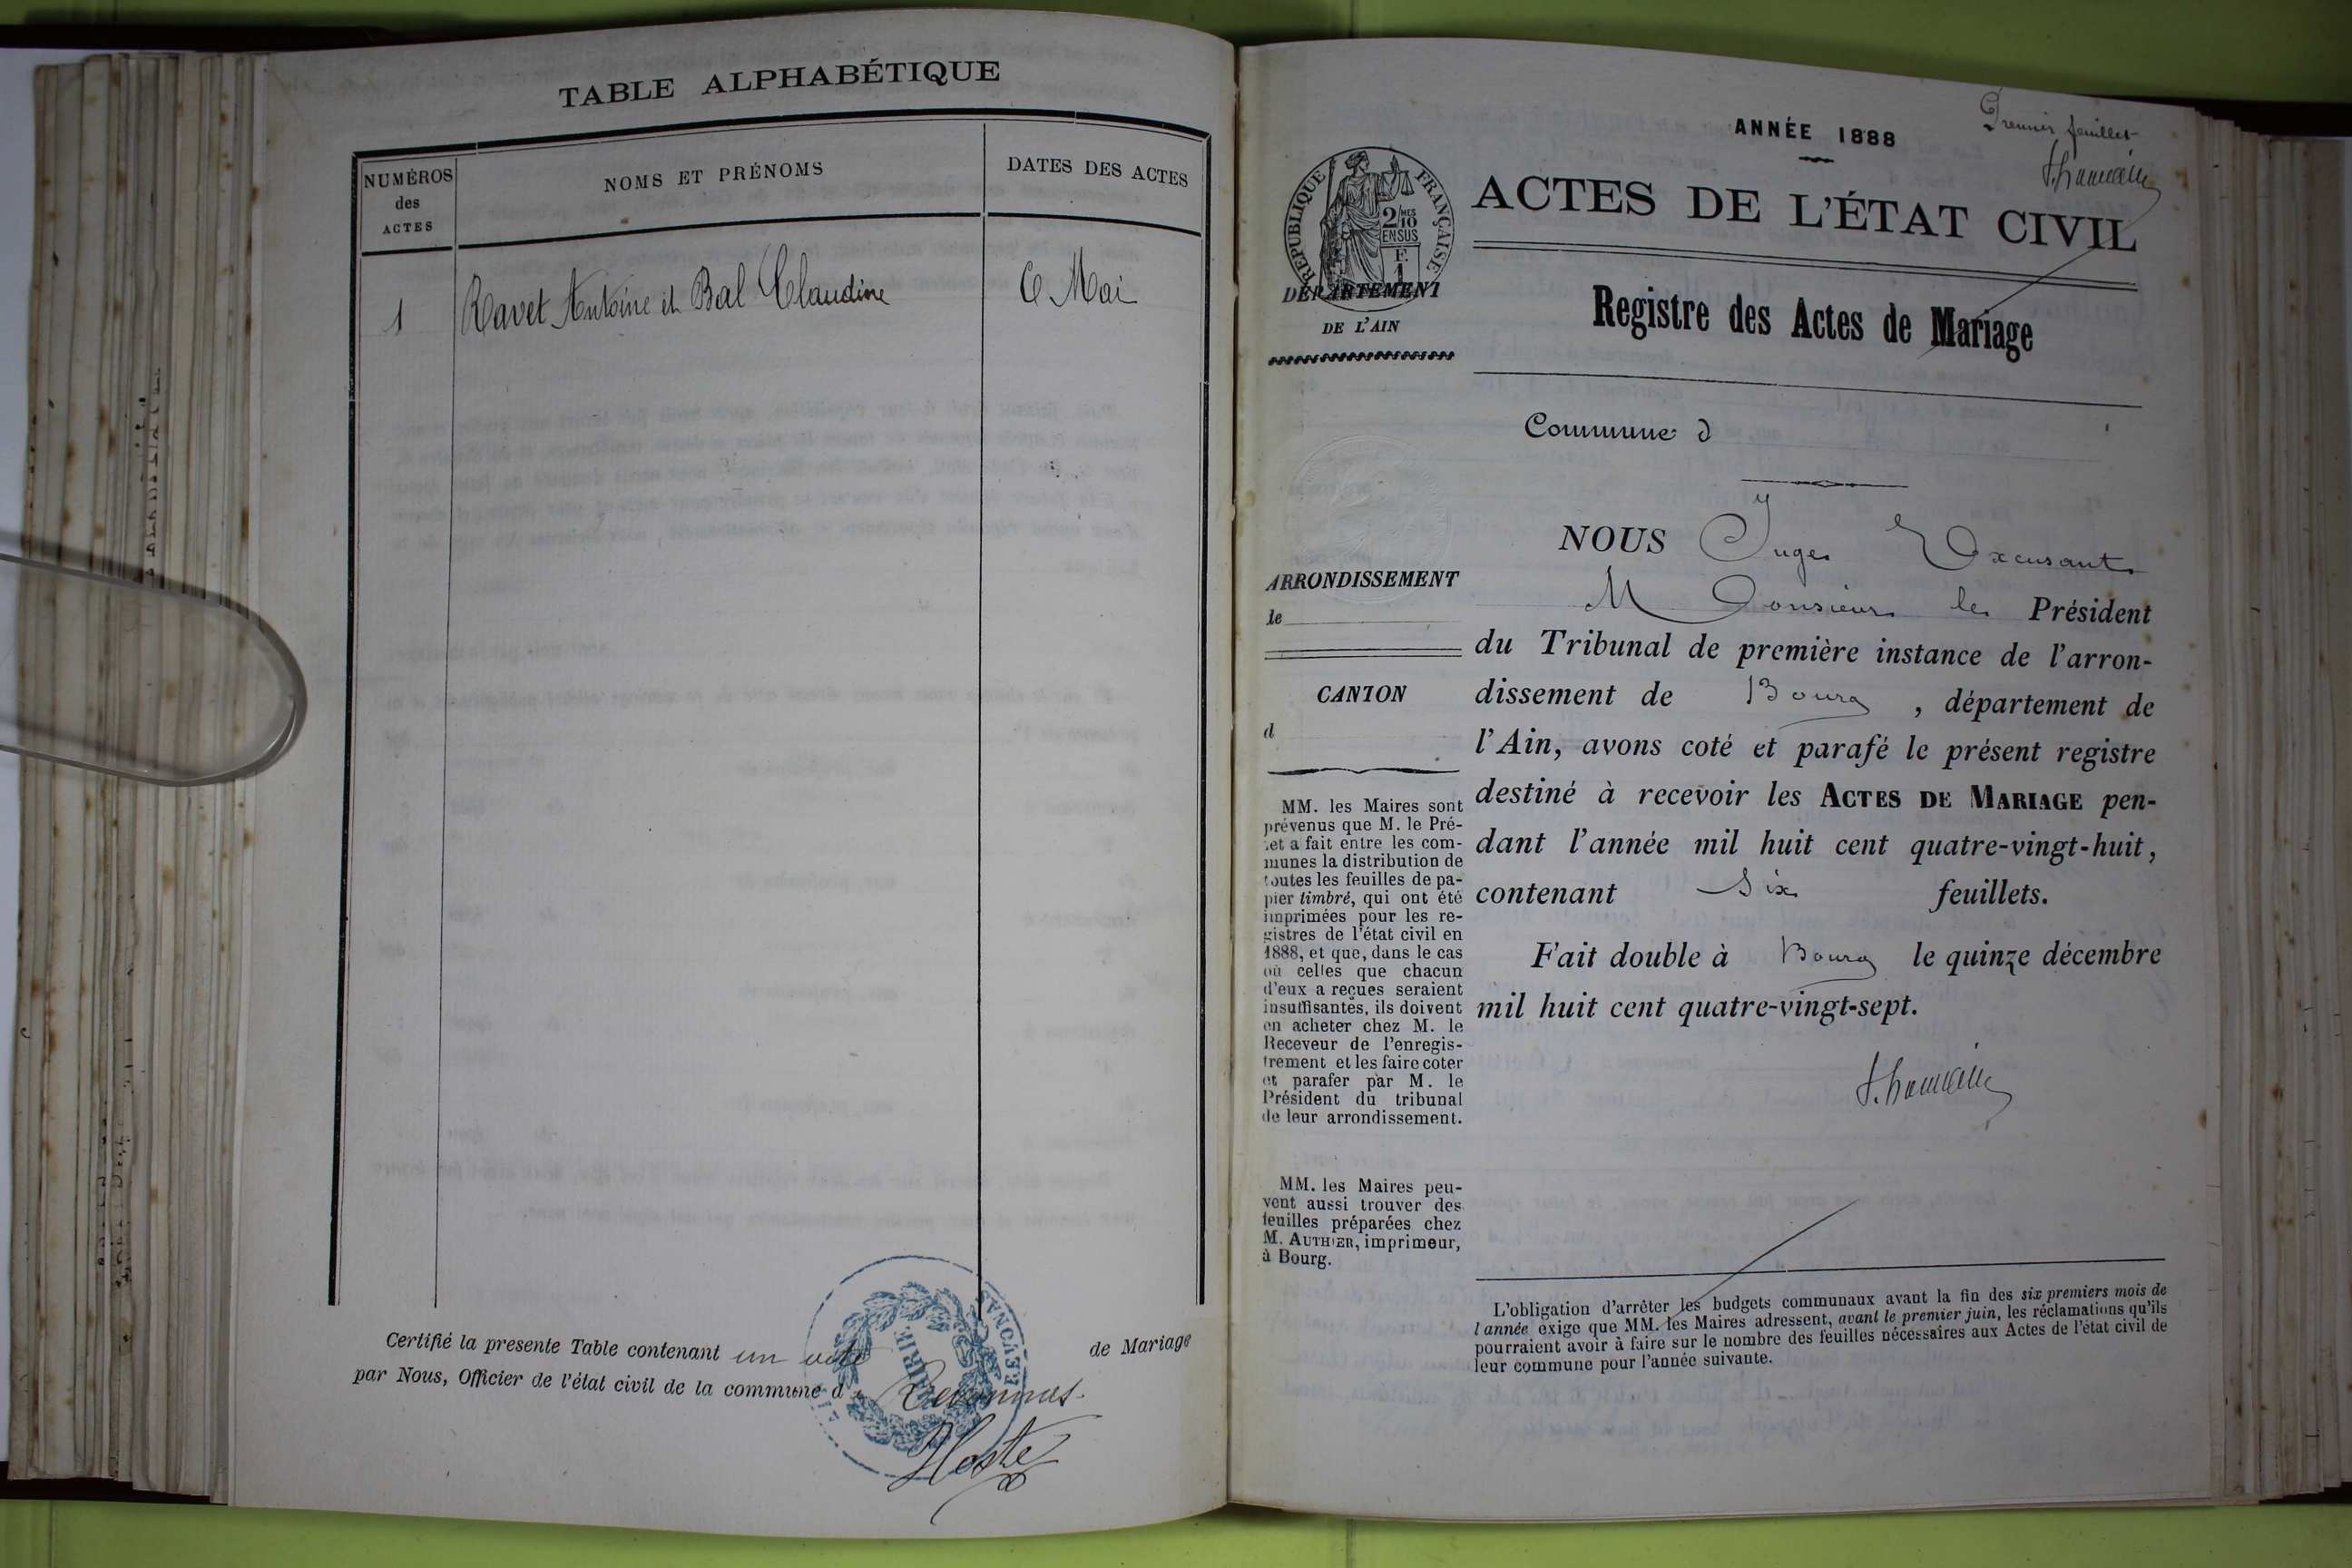 TABLE ALPHABÉTIQUE
NUMÉROS
des
ACTES
NOMS ET PRÉNOMS
DATES DES ACTES
1
Ravet Antoine et Bal Claudine
6 Mai
Certifié la presente Table contenant un acte de Mariage
par Nous, Officier de l'état civil de la commune d
MAIRIE
Premier feuillet
ANNÉE 1888
RÉPUBLIQUE FRANÇAISE
2/10
MES
EN SUS
F.
1
DÉPARTEMENT
DE L'AIN
ACTES DE L'ÉTAT CIVIL
Registre des Actes de Mariage
Commune d
ARRONDISSEMENT
de
CANTON
d
MM. les Maires sont
prévenus que M. le Pré-
fet a fait entre les com-
munes la distribution de
toutes les feuilles de pa-
pier timbré, qui ont été
imprimées pour les re-
gistres de l'état civil en
1888, et que, dans le cas
où celles que chacun
d'eux a reçues seraient
insuffisantes, ils doivent
en acheter chez M. le
Receveur de l'enregis-
trement et les faire coter
et parafer par M. le
Président du tribunal
de leur arrondissement.
MM. les Maires peu-
vent aussi trouver des
feuilles préparées chez
M. AUTHIER, imprimeur,
à Bourg.
NOUS Juge Excusant
Monsieur le Président
du Tribunal de première instance de l'arron-
dissement de Bourg, département de
l'Ain, avons coté et parafé le présent registre
destiné à recevoir les ACTES DE MARIAGE pen-
dant l'année mil huit cent quatre-vingt-huit,
contenant Six feuillets.
Fait double à Bourg le quinze décembre
mil huit cent quatre-vingt-sept.
L'obligation d'arrêter les budgets communaux avant la fin des six premiers mois de
l'année exige que MM. les Maires adressent, avant le premier juin, les réclamations qu'ils
pourraient avoir à faire sur le nombre des feuilles nécessaires aux Actes de l'état civil de
leur commune pour l'année suivante.